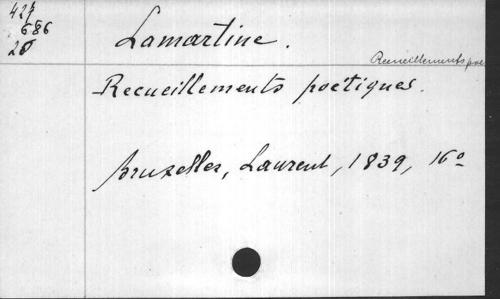 427
686
20
Lamartine.
Recueillements poé
Recueillements poétiques.
Bruxelles, Laurent, 1839, 16º